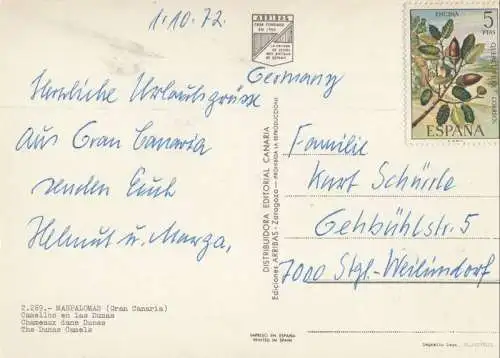 1.10.72.
ARRIBAS
CASA FUNDADA
Germany
ENCINA
5
PTAS
ESPAÑA
Herzliche Urlaubsgrüsse
aus Gran Canaria
senden Euch
Helmut u. Marga.
Familie
Kurt Schürle
Gehbühlstr. 5
7000 Stgt.-Weilimdorf
DISTRIBUIDORA EDITORIAL CANARIA
Ediciones ARRIBAS - Zaragoza - PROHIBIDA LA REPRODUCCION
2.289.- MASPALOMAS (Gran Canaria)
Camellos en las Dunas
Chameaux dans Dunas
The Dunas Camels
IMPRESO EN ESPAÑA
PRINTED IN SPAIN
Depósito Legal